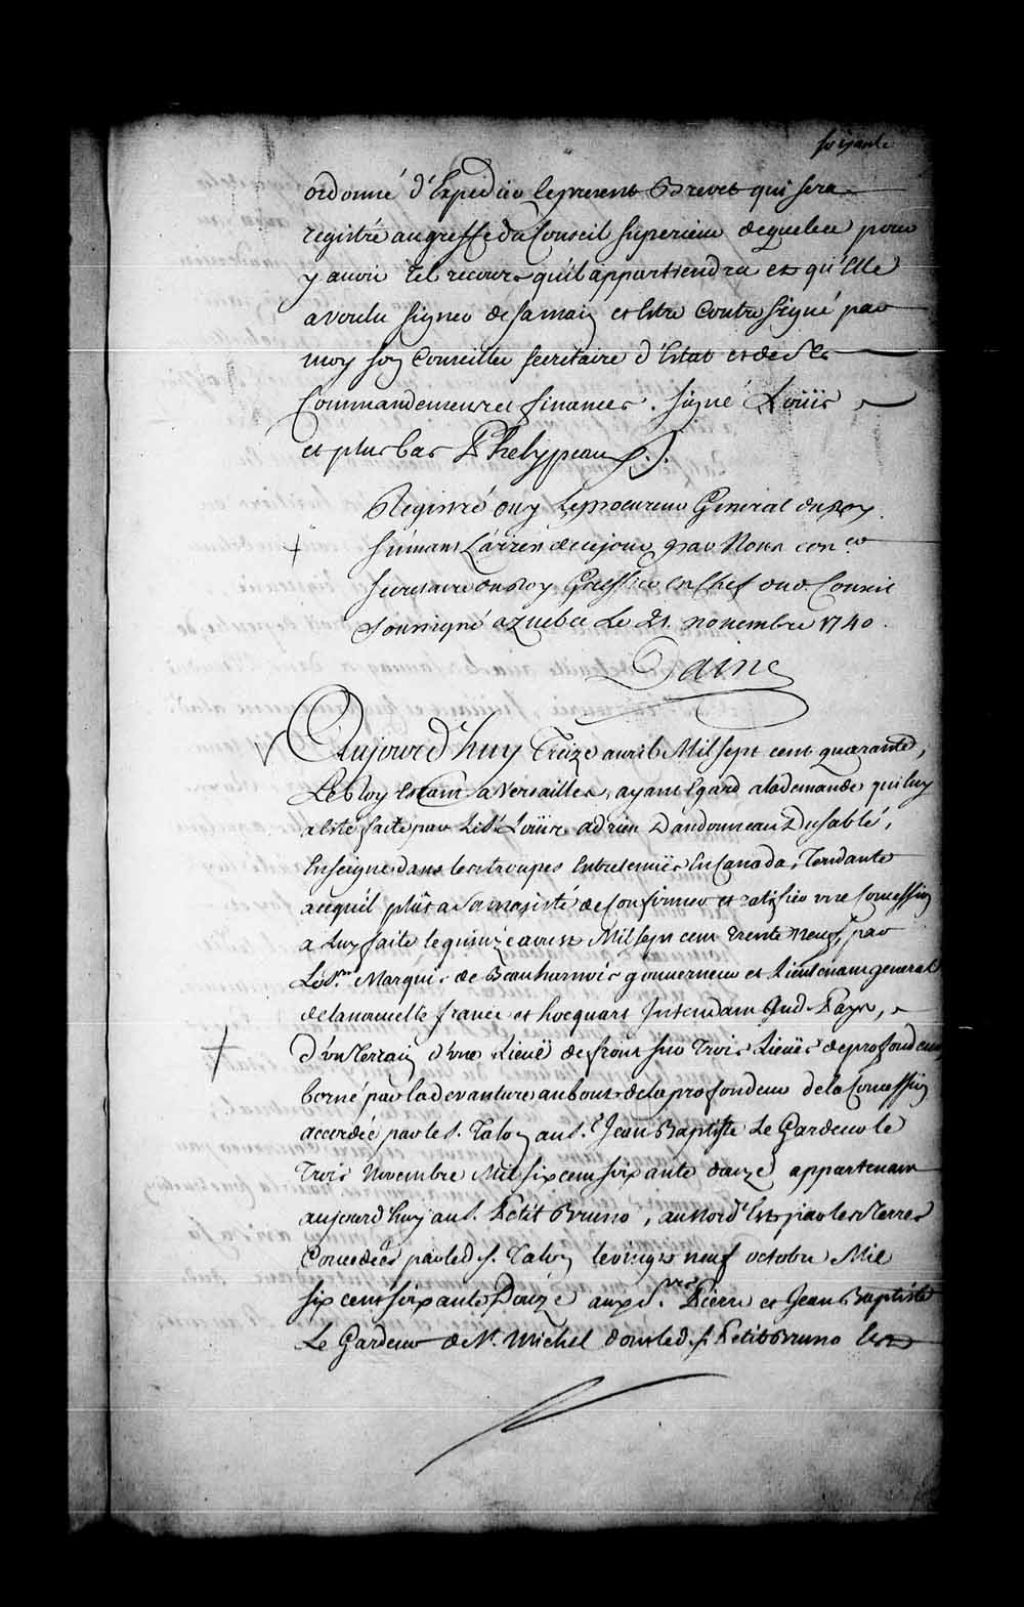 soixante
ordonné d'Expedier le present Brevet qui sera
registré au greffe du Conseil Superieur de quebec pour
y avoir tel recours qu'il appartiendra et qu'Elle
a voulu signer de sa main et Estre Contre signé par
moy son Conseiller Secretaire d'Estat et de Ses
Commandemens et finances. Signé Loüis
et plus bas Phelypeaux ./.
Registré ouy Le procureur General du Roy
suivant L'arrest de ce jour par Nous con.er
Secretaire du Roy Greffier En Chef aud. Conseil
Soussigné a quebec Le 21. novembre 1740.
Daine
Aujourd'huy Treize avril Mil sept cent quarante,
Le Roy Estant a Versailles, ayant Egard a la demande qui luy
a Esté faite par Le S.r Loüis adrien Dandonneau Dusablé,
Enseigne dans les troupes Entretenuës En Canada, Tendante
a ce qu'il plût a Sa majesté de Confirmer et ratifier une Concession
a Luy faite le quinze aoust Mil sept cent trente neuf, par
Les S.rs Marquis de Beauharnois gouverneur et Lieutenant general
de la nouvelle france et hocquart Intendant Aud. Pays,
d'un terrain d'une Lieuë de front sur Trois Lieuës de profondeur
borné par la devanture au bout de la profondeur de la Concession
accordée par le S. Talon au S.r Jean Baptiste Le Gardeur le
Trois Novembre Mil six cent soixante douze appartenant
aujourd'huy au S. Petit Bruno, au Nord'Est par les terres
Concedées par led. S. Talon le vingt neuf octobre Mil
six cent soixante Douze aux S.rs Pierre et Jean Baptiste
Le Gardeur de S.t Michel dont led. S. Petit Bruno Est